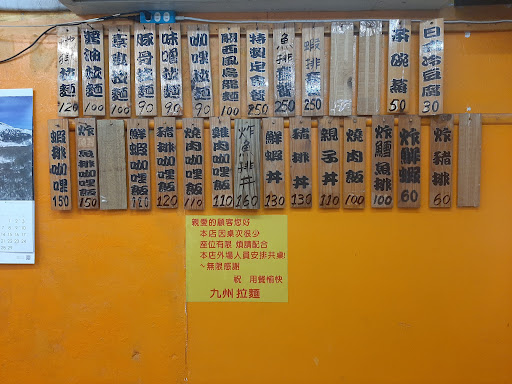 拉麵 120
醬油拉麵 100
拉麵 100
豚骨拉麵 90
味噌拉麵 90
咖哩拉麵 90
鯛西風烏龍麵 100
特製定食飯 250
魚排 250
蝦排 250
茶碗蒸 50
日式冷豆腐 30
蝦排咖哩 150
炸魚排咖哩 150
鮮蝦咖哩飯 120
豬排咖哩飯 120
燒肉咖哩飯 110
雞肉咖哩飯 110
炸魚排丼 160
鮮蝦丼 130
豬排丼 130
親子丼 110
燒肉飯 100
炸鱈魚排 100
炸鮮蝦 60
炸豬排 60
親愛的顧客您好
本店因桌次很少
座位有限 煩請配合
本店外場人員安排共桌!
~無限感謝
祝 用餐愉快
九州拉麵